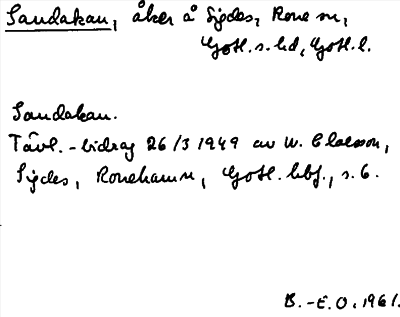 Sandakau, åker å Sigdes, Rone sn,
Gotl. s. hd, Gotl. l.
Sandakau.
Tävl.-bidrag 26/3 1949 av W. Claesson,
Sigdes, Ronehamn, Gotl. hbf., s. 6.
B.-E. O. 1961.